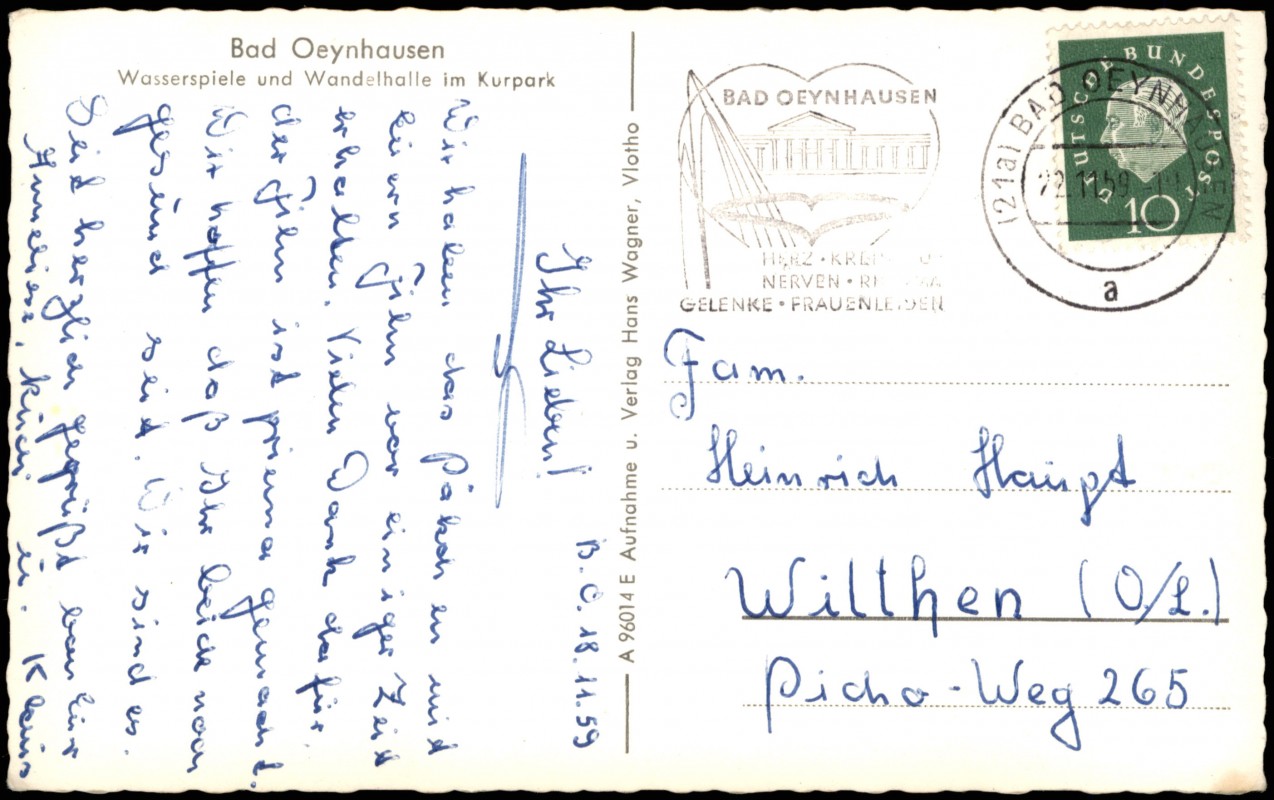 Bad Oeynhausen
Wasserspiele und Wandelhalle im Kurpark
B. O. 18.11.59
Ihr Lieben!
Wir haben das Päkchen mit
euern Film vor einiger Zeit
erhalten. Vielen Dank dafür.
der Film ist prima gemacht.
Wir hoffen daß Ihr beide noch
gesund seid. Wir sind es.
Seid herzlich gegrüßt von eur
Klaus
A 96014 E Aufnahme u. Verlag Hans Wagner, Vlotho
BAD OEYNHAUSEN
HERZ · KREIS
NERVEN ·
GELENKE · FRAUENLEIDEN
(21a) BAD OEYNHAUSEN
22.11.59
a
DEUTSCHE BUNDESPOST
10
Fam.
Heinrich Haupt
Wilthen (O/L.)
Picho-Weg 265